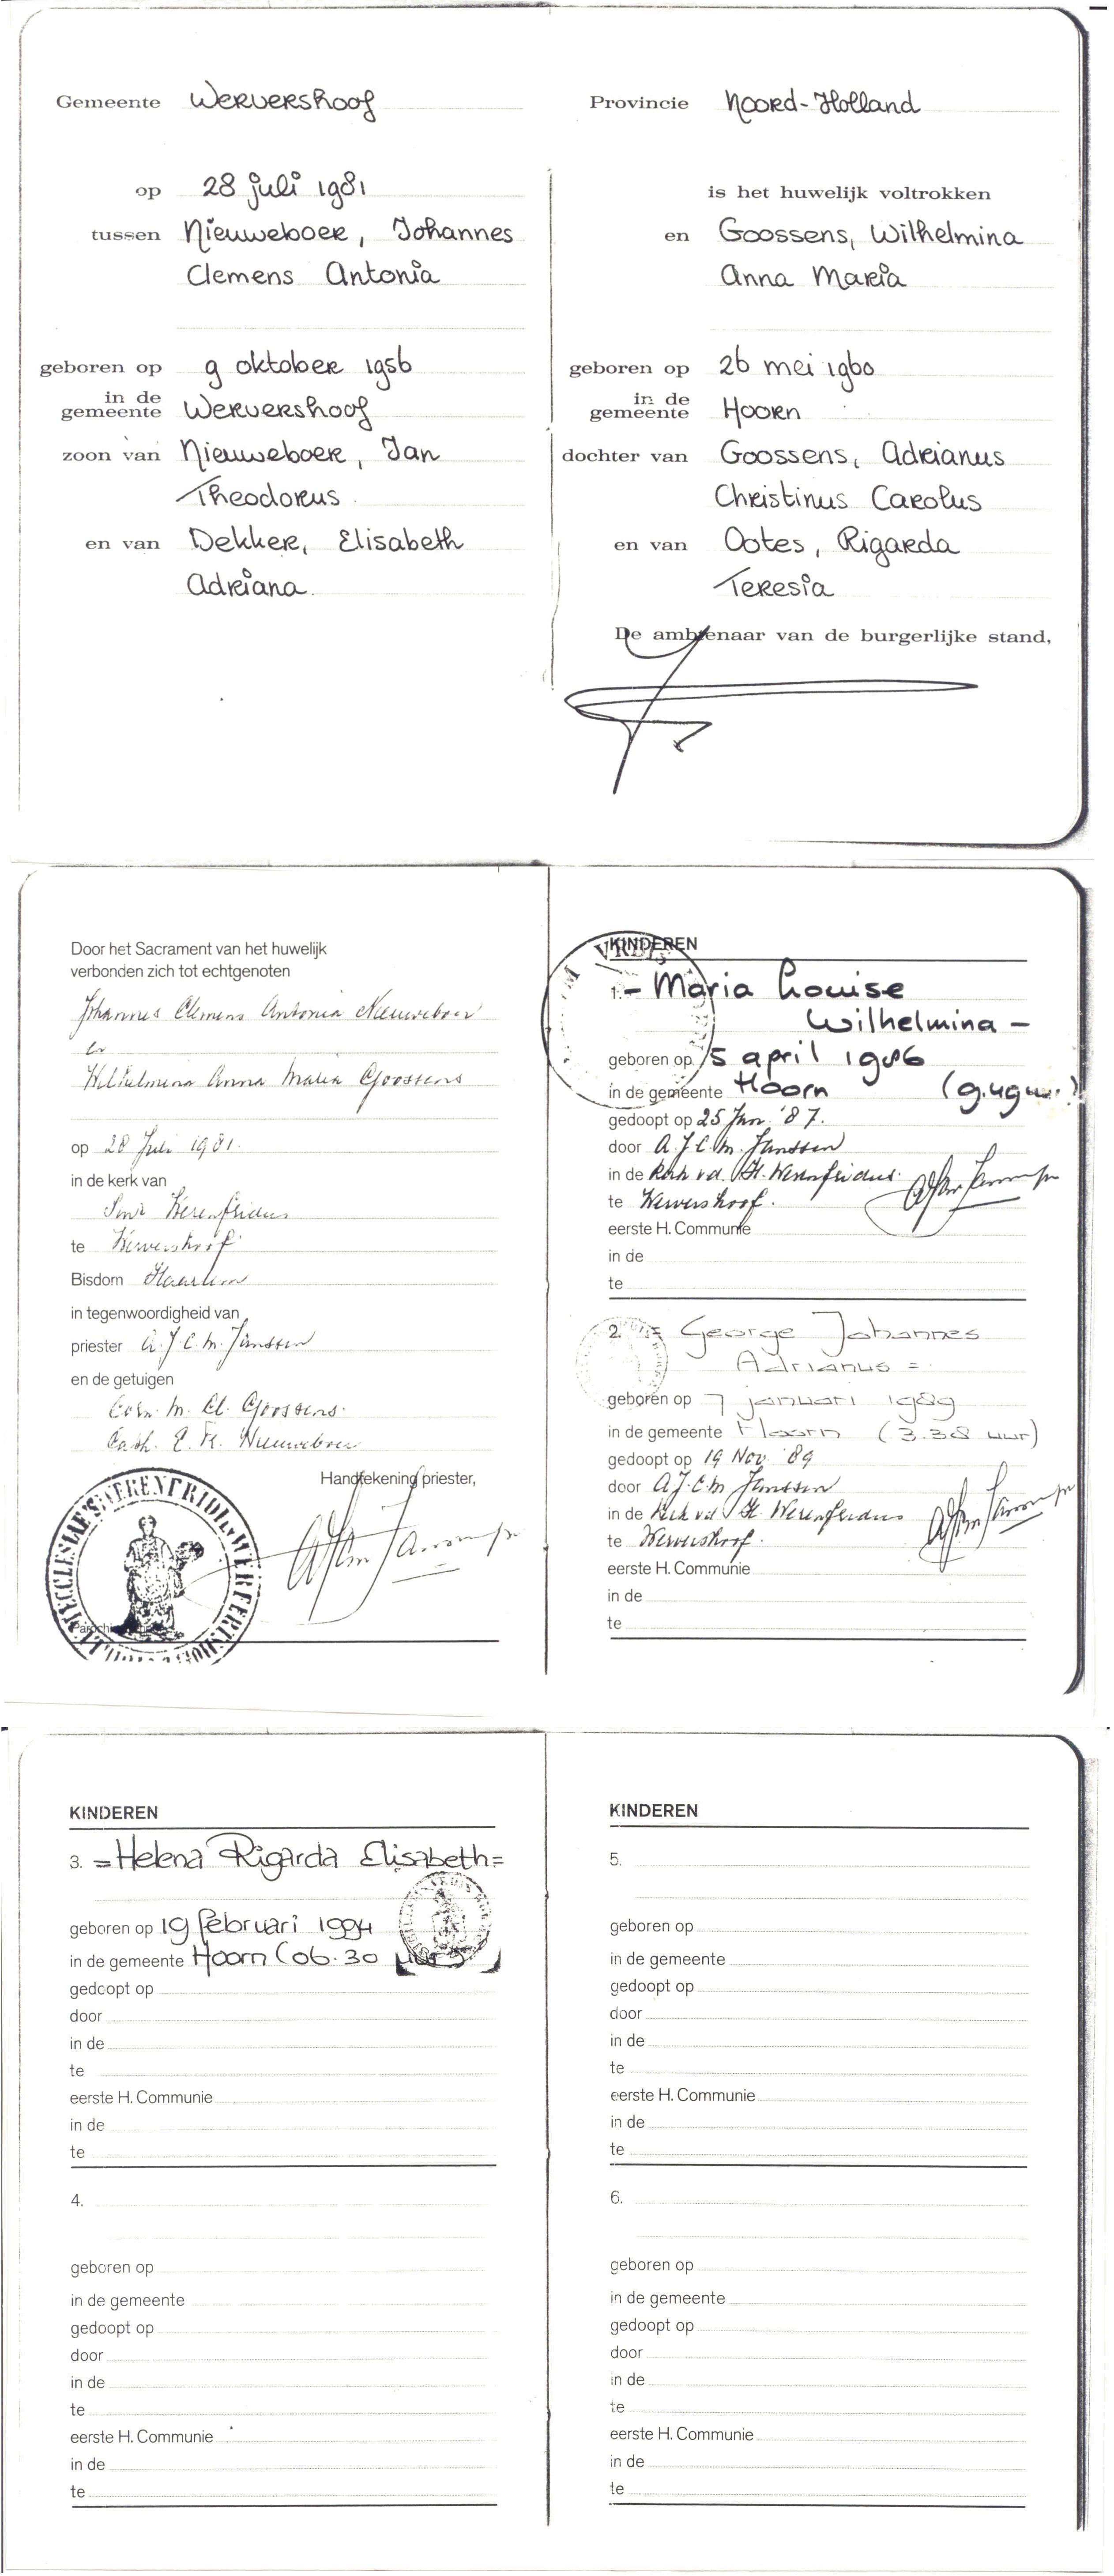 Gemeente Wervershoof
op 28 juli 1981
tussen Nieuweboer, Johannes
Clemens Antonia
geboren op 9 oktober 1956
in de
gemeente Wervershoof
zoon van Nieuweboer, Jan
Theodorus
en van Dekker, Elisabeth
Adriana.
Provincie Noord-Holland
is het huwelijk voltrokken
en Goossens, Wilhelmina
Anna Maria
geboren op 26 mei 1960
in de
gemeente Hoorn
dochter van Goossens, Adrianus
Christinus Carolus
en van Ootes, Rigarda
Teresia
De ambtenaar van de burgerlijke stand,
Door het Sacrament van het huwelijk
verbonden zich tot echtgenoten
Johannes Clemens Antonia Nieuweboer
en
Wilhelmina Anna Maria Goossens
op 28 Juli 1981.
in de kerk van
Sint Werenfridus
te Wervershoof
Bisdom Haarlem
in tegenwoordigheid van
priester A.J.C.M. Janssen
en de getuigen
Corn. M. Cl. Goossens.
Cath. E. K. Nieuweboer
Handtekening priester,
KINDEREN
1. - Maria Louise
Wilhelmina -
geboren op 5 april 1986
in de gemeente Hoorn
gedoopt op 25 Jan. '87.
door A.J.C.M. Janssen
in de Kerk v.d. H. Werenfridus.
te Wervershoof.
eerste H. Communie
in de
te
2. = George Johannes
Adrianus =
geboren op 7 januari 1989
in de gemeente Hoorn (3.38 uur)
gedoopt op 19 Nov '89
door A.J.C.M Janssen
in de Kerk v.d. H. Werenfridus
te Wervershoof.
eerste H. Communie
in de
te
KINDEREN
3. = Helena Rigarda Elisabeth =
geboren op 19 februari 1994
in de gemeente Hoorn (06.30 uur)
gedoopt op
door
in de
te
eerste H. Communie
in de
te
4.
geboren op
in de gemeente
gedoopt op
door
in de
te
eerste H. Communie
in de
te
KINDEREN
5.
geboren op
in de gemeente
gedoopt op
door
in de
te
eerste H. Communie
in de
te
6.
geboren op
in de gemeente
gedoopt op
door
in de
te
eerste H. Communie
in de
te